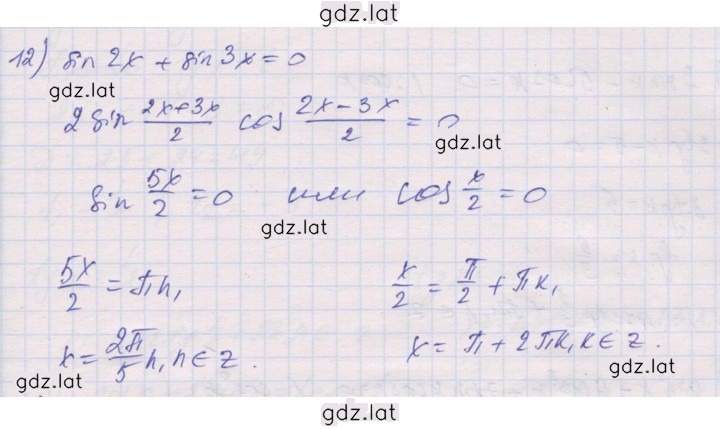 gdz.lat
12) sin 2x + sin 3x = 0
gdz.lat
2 sin (2x+3x)/2 cos (2x-3x)/2 = 0
gdz.lat
sin 5x/2 = 0 или cos x/2 = 0
gdz.lat
5x/2 = πn, x/2 = π/2 + πk,
x = 2π/5 n, n ∈ z. x = π + 2πk, k ∈ z.
gdz.lat gdz.lat
gdz.lat